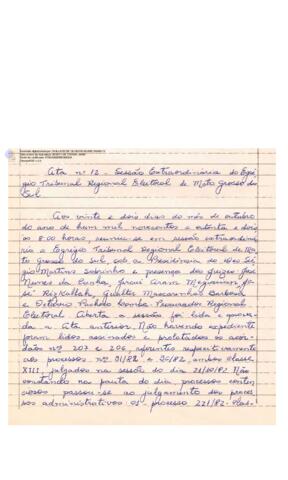 Ata nº 12 - Sessão Extraordinária do Egré-
gio Tribunal Regional Eleitoral de Mato Grosso do
Sul
Aos vinte e dois dias do mês de outubro
do ano de hum mil novecentos e oitenta e dois
às 8:00 horas, reuniu-se em sessão extraordiná-
ria o Egrégio Tribunal Regional Eleitoral de Ma-
to Grosso do Sul, sob a Presidência do
Martins Sobrinho e presença dos Juízes José
Nunes da Cunha,
sé Rizkallah, Gualter Mascarenhas Barbosa
e Procurador Regional
Eleitoral. Aberta a sessão foi lida e aprova-
da a Ata anterior. Não havendo expediente
foram lidos, assinados e publicados os acór-
dãos nº 207 e 206, referentes respectivamente
aos processos nº 31/82 e 30/82, ambos classe
XIII, julgados na sessão do dia 21/10/82. Não
constando na pauta do dia, processos conten-
ciosos passou-se ao julgamento dos proces-
sos administrativos 01- processo 221/82 clas-